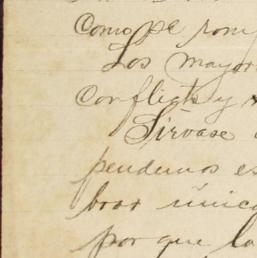 Como se rom
Los mayor
conflicto y
Sírvase
pendemos es
brar única
por que la